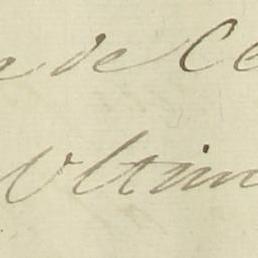 de Ce
Ultim